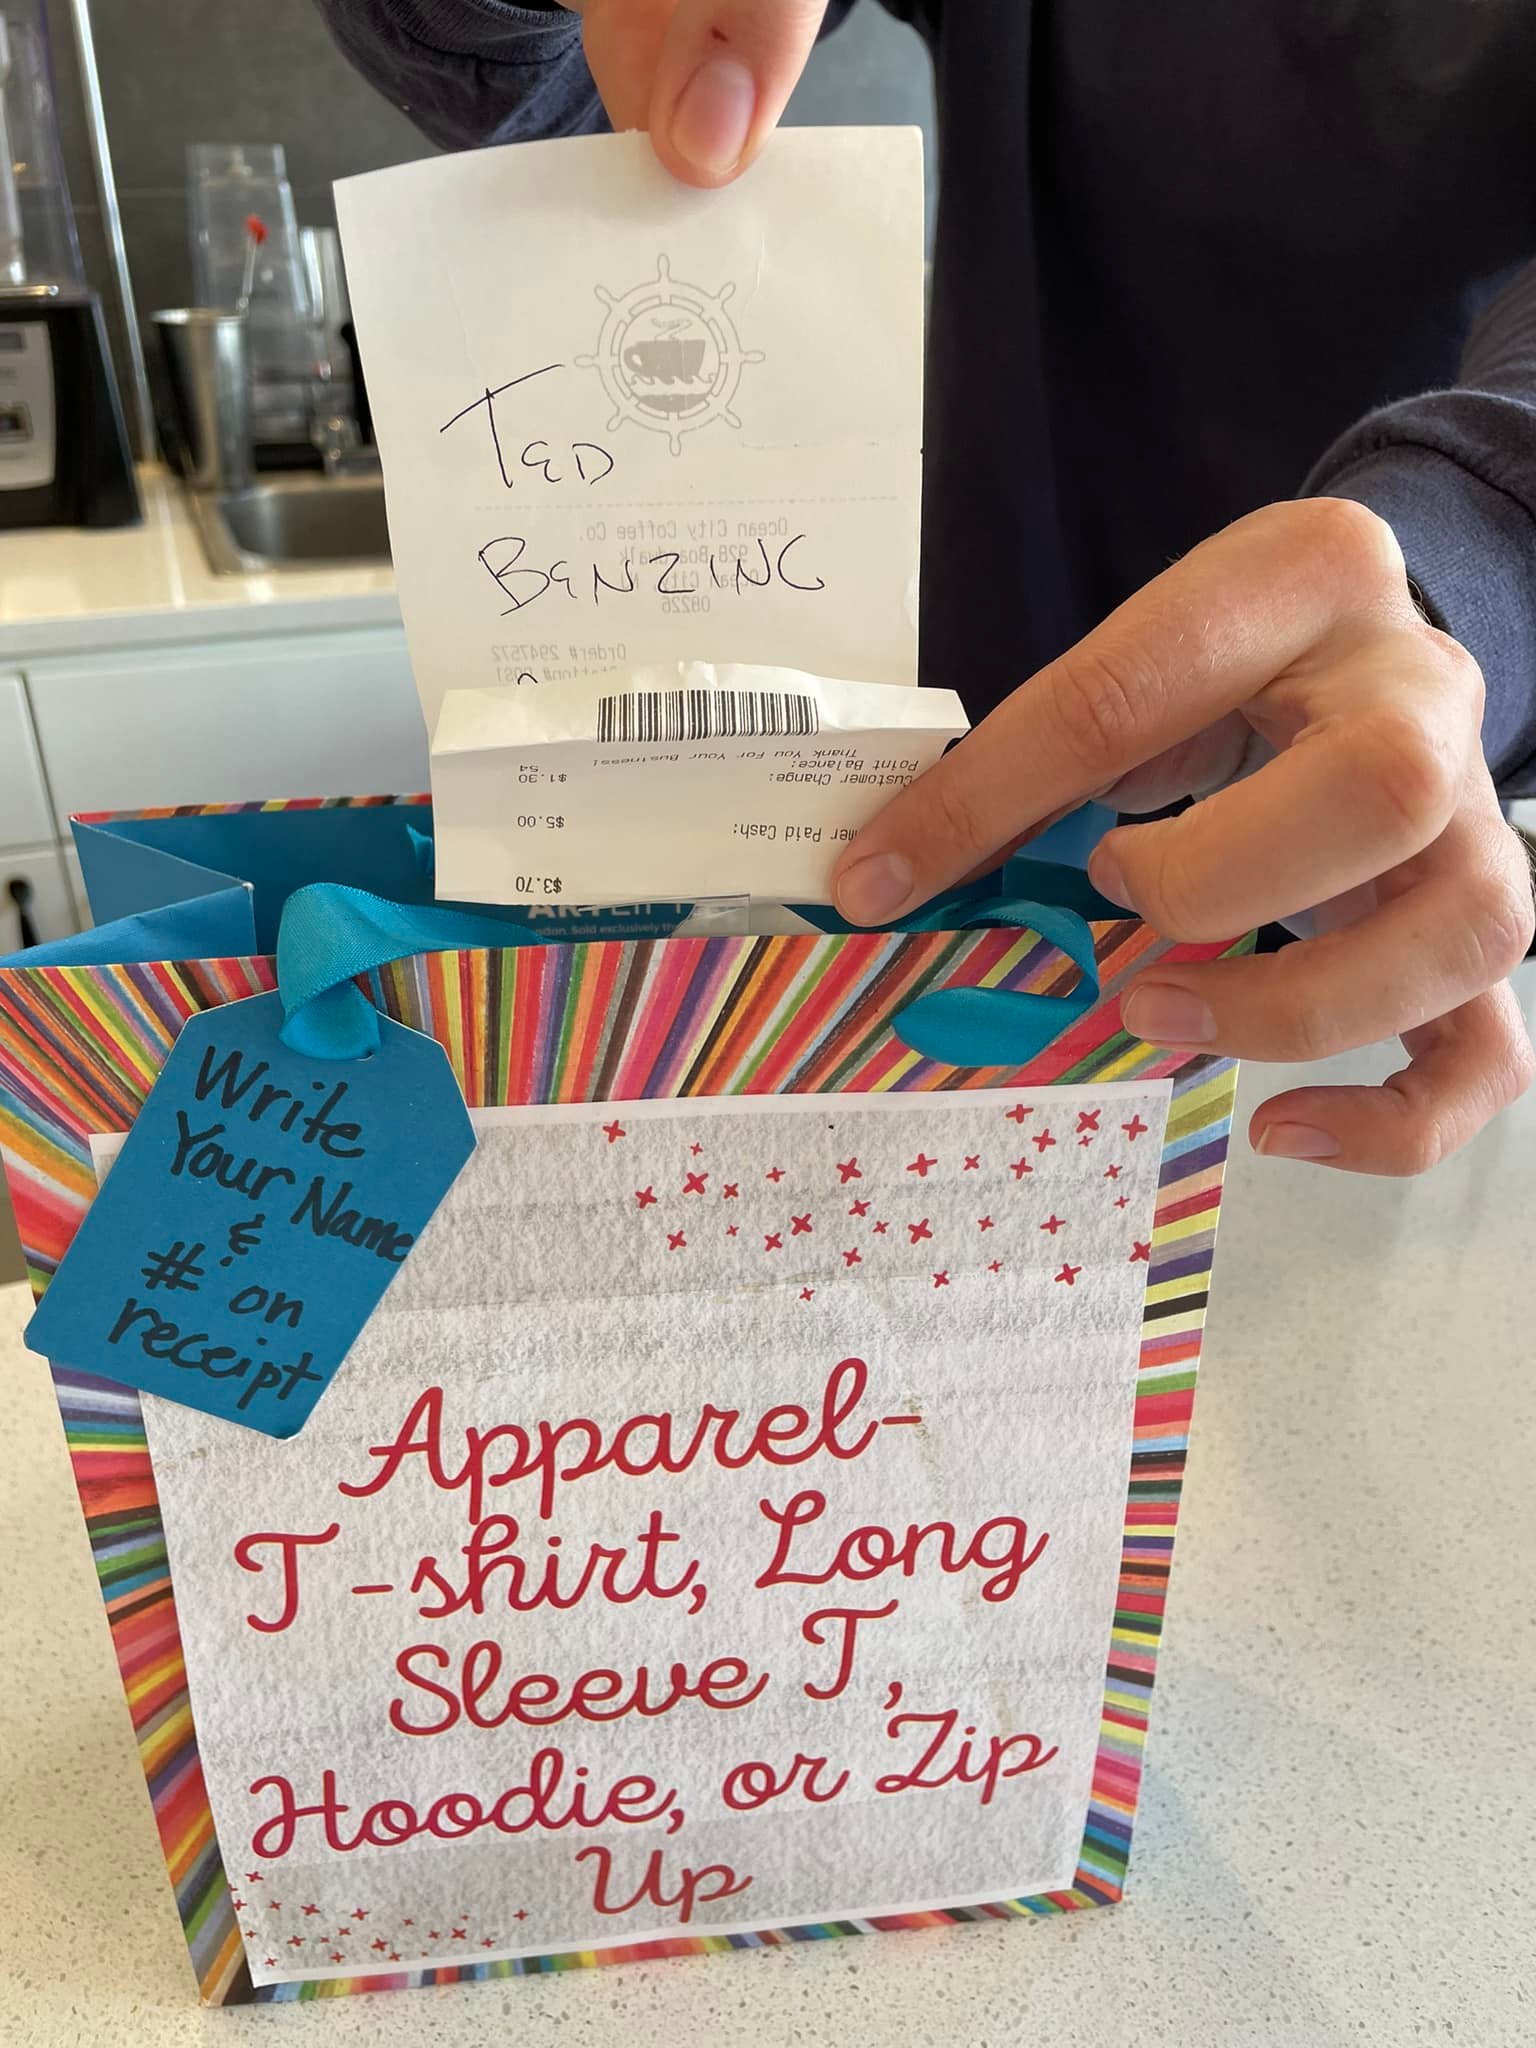 TED
BENZING
Ocean City Coffee Co.
928 Boardwalk
Ocean City, NJ
08226
Order# 2947572
Station# POS1
Thank You For Your Business!
Point Balance: 54
Customer Change: $1.30
Paid Cash: $5.00
$3.70
Sold exclusively
Write
Your Name
&
# on
receipt
Apparel-
T-shirt, Long
Sleeve T,
Hoodie, or Zip
Up